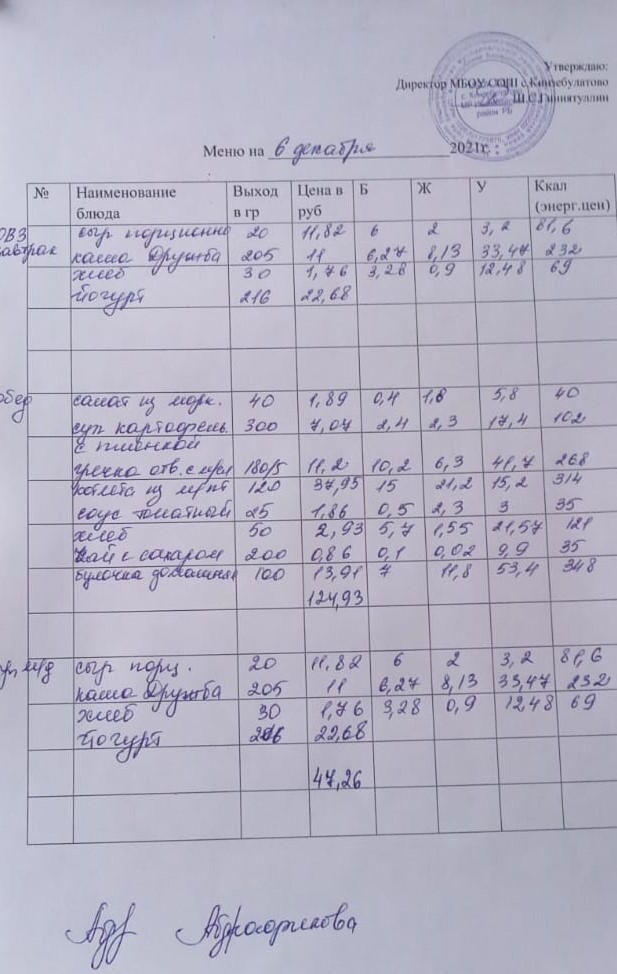 Утверждаю:
Директор МБОУ СОШ с.Кинзебулатово
Ш.С.Гиниятуллин
Меню на 6 декабря 2021г.
№ Наименование блюда Выход в гр Цена в руб Б Ж У Ккал (энерг.цен)
ОВЗ сыр порционно 20 11,82 6 2 3,2 81,6
завтрак каша Дружба 205 11 6,27 8,13 33,47 232
хлеб 30 1,76 3,28 0,9 12,48 69
йогурт 216 22,68
обед салат из морк. 40 1,89 0,4 1,8 5,8 40
суп картофель. 300 7,07 2,4 2,3 17,4 102
с пшенкой
гречка отв. с м/сл 180/5 11,2 10,2 6,3 41,7 268
котлета из м/пт 120 37,95 15 21,2 15,2 314
соус томатный 25 1,86 0,5 2,3 3 35
хлеб 50 2,93 5,7 1,55 21,57 121
чай с сахаром 200 0,86 0,1 0,02 9,9 35
булочка домашняя 100 13,91 7 11,8 53,4 348
124,93
м/д сыр порц. 20 11,82 6 2 3,2 81,6
каша Дружба 205 11 6,27 8,13 33,47 232
хлеб 30 1,76 3,28 0,9 12,48 69
йогурт 216 22,68
47,26